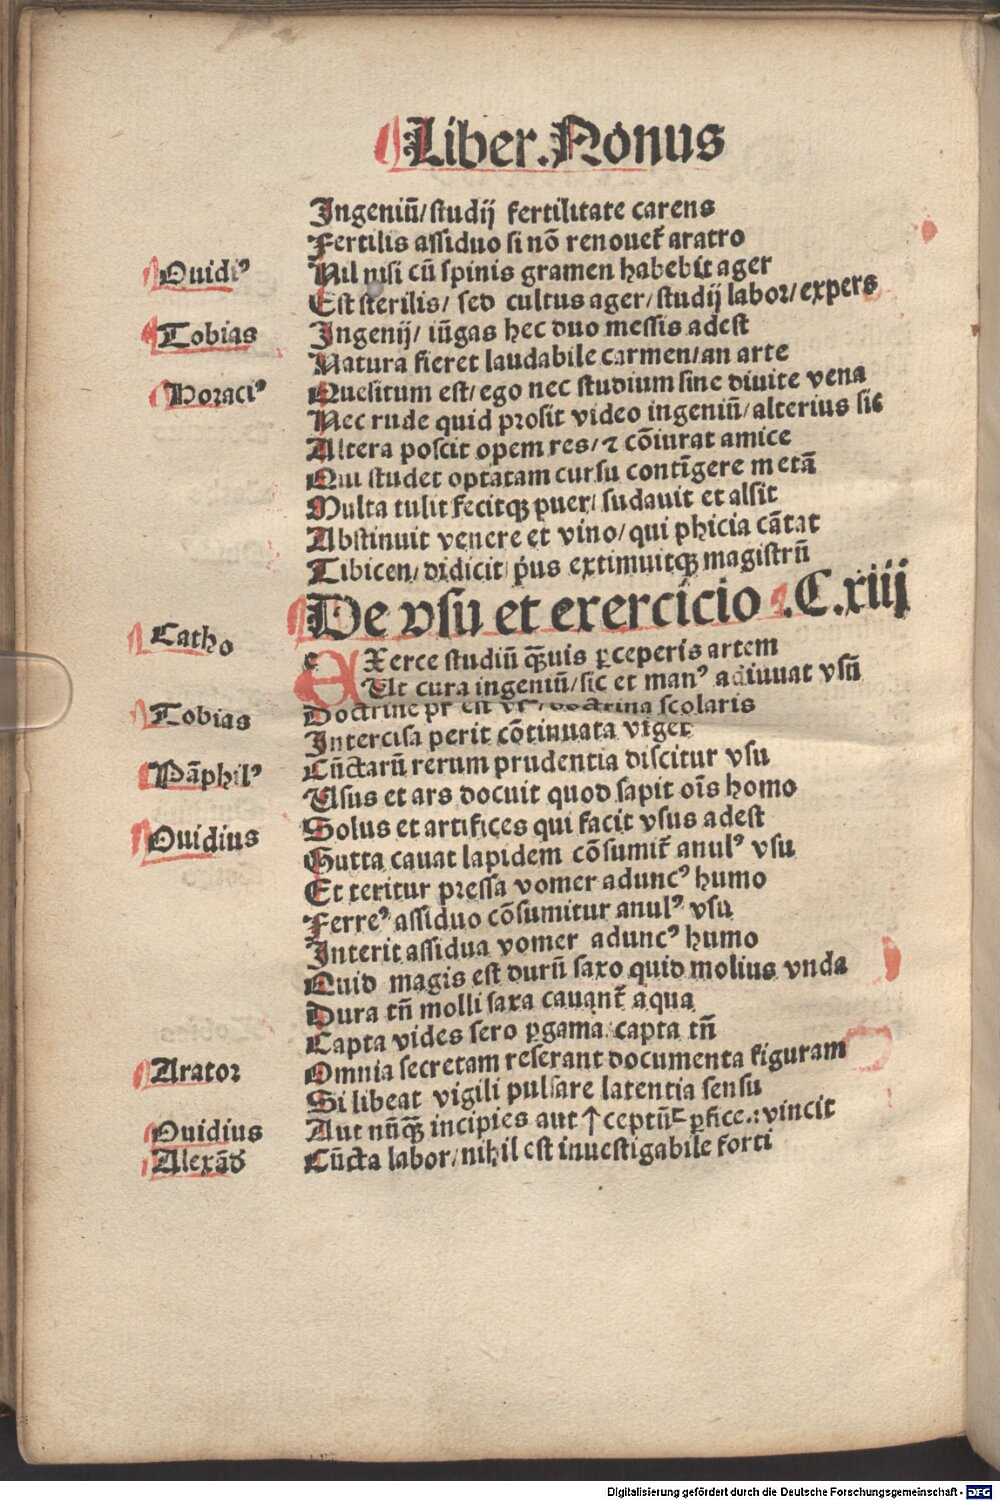 Liber.Nonus
Ingeniū/studij fertilitate carens
Fertilis assiduo si nō renouet᷑ aratro
Ouidiꝰ Nil nisi cū spinis gramen habebit ager
Est sterilis/ sed cultus ager/studij labor/expers
Tobias Ingenij/ iūgas hec duo messis adest
Natura fieret laudabile carmen/an arte
Horaciꝰ Quesitum est/ego nec studium sine diuite vena
Nec rude quid prosit video ingeniū/alterius sic
Altera poscit opem res/⁊ cōiurat amice
Qui studet optatam cursu contīgere metā
Multa tulit fecitqꝫ puer/sudauit et alsit
Abstinuit venere et vino/qui phicia cātat
Tibicen/didicit p̄us extimuitqꝫ magistrū
De vsu et exercicio .C.xiij
Catho e Xerce studiū qꝫ̄uis ꝑceperis artem
Ut cura ingeniū/sic et manꝰ adiuuat vsū
Tobias Doctrine pr est vsꝰ/doctrina scolaris
Intercisa perit cōtinuata viget
Pāphilꝰ Cūctarū rerum prudentia discitur vsu
Usus et ars docuit quod sapit oīs homo
Solus et artifices qui facit vsus adest
Ouidius Gutta cauat lapidem cōsumit᷑ anulꝰ vsu
Et teritur pressa vomer aduncꝰ humo
Ferreꝰ assiduo cōsumitur anulꝰ vsu
Interit assidua vomer aduncꝰ humo
Quid magis est durū saxo quid molius vnda
Dura tn̄ molli saxa cauant᷑ aqua
Capta vides sero ꝑgama capta tn̄
Arator Omnia secretam reserant documenta figuram
Si libeat vigili pulsare latentia sensu
Ouidius Aut nūqꝫ̄ incipies aut ceptū ꝑfice.:vincit
Alexād Cūcta labor/nihil est inuestigabile forti
Digitalisierung gefördert durch die Deutsche Forschungsgemeinschaft - DFG